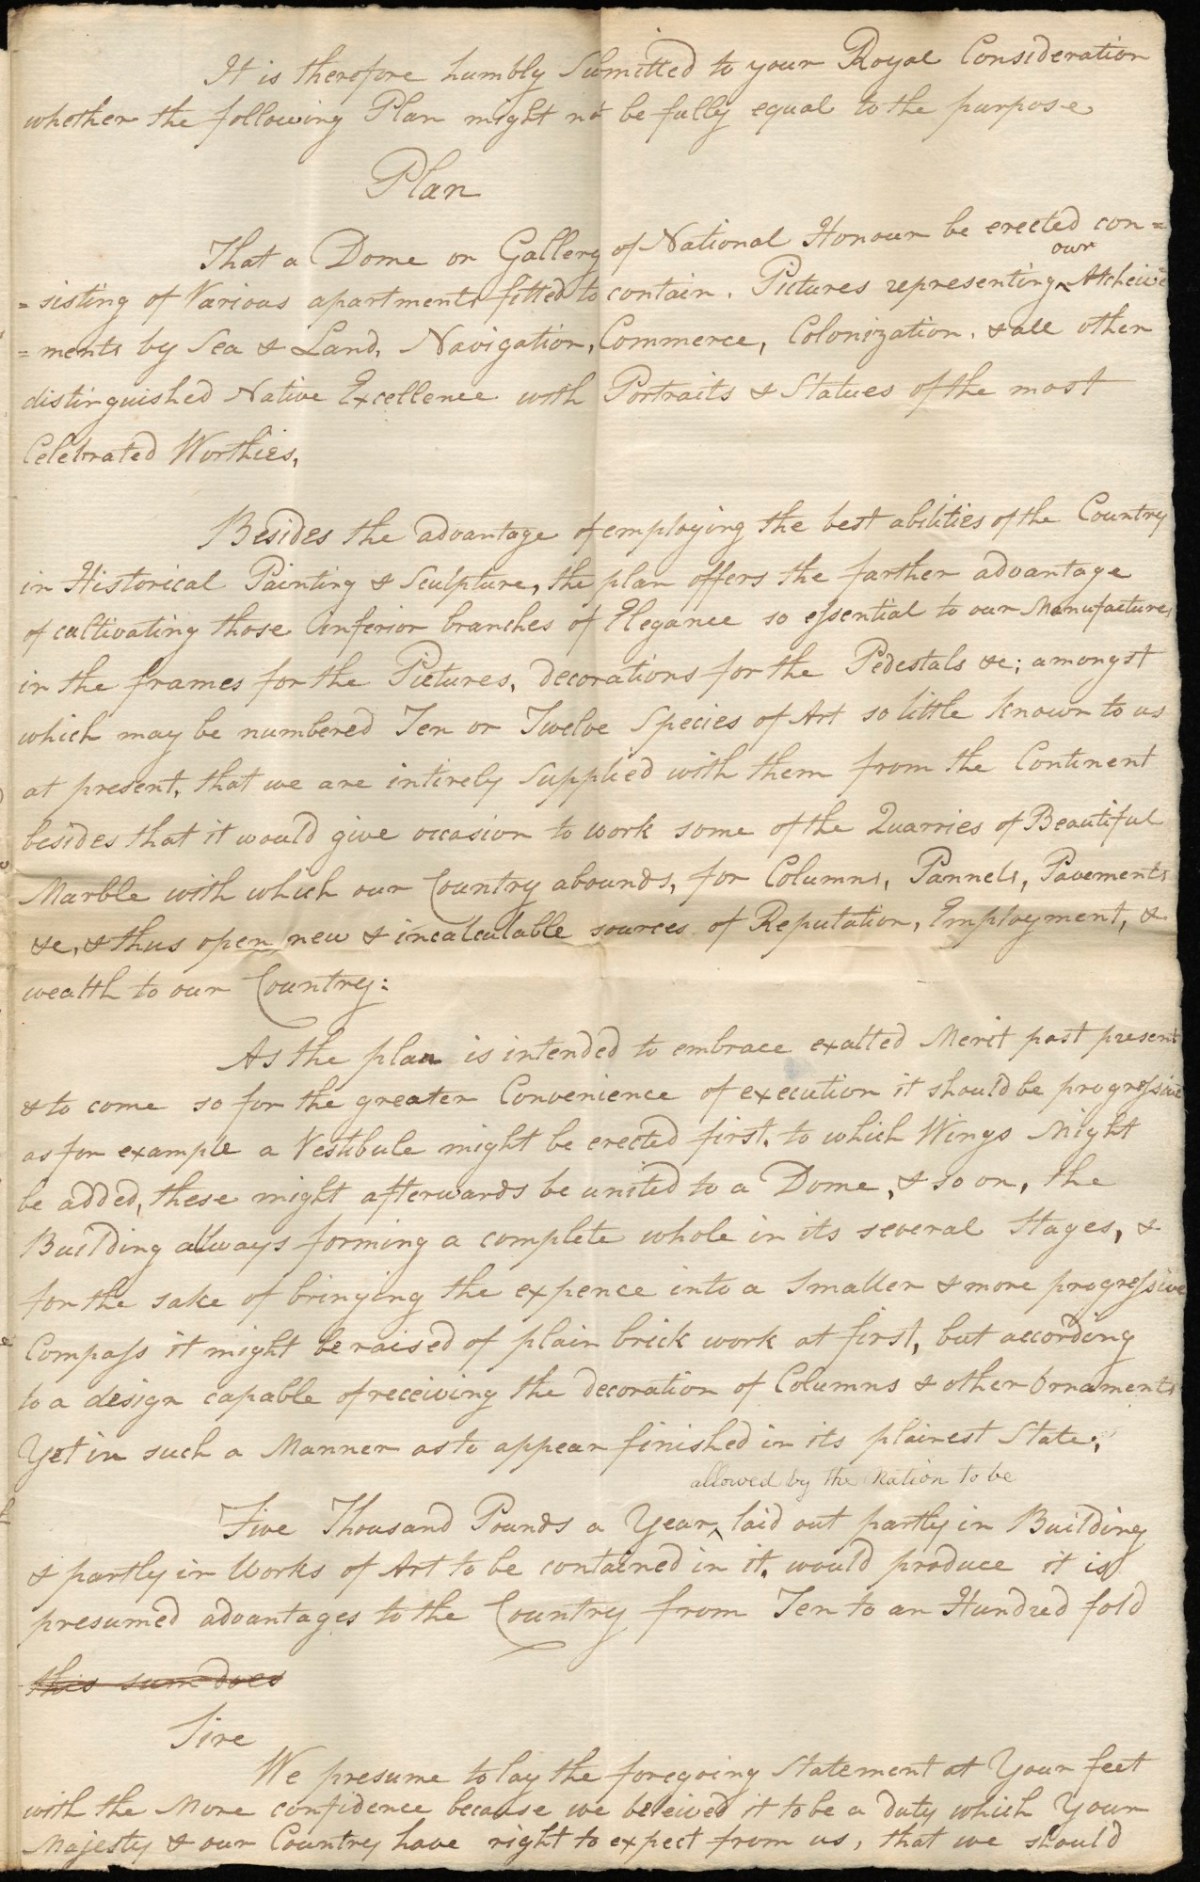 It is therefore humbly Submitted to your Royal Consideration
whether the following Plan might not be fully equal to the purpose
Plan
That a Dome or Gallery of National Honour be erected con=
our
=sisting of Various apartments fitted to contain. Pictures representing ^ Atcheive
=ments by Sea & Land, Navigation, Commerce, Colonization. & all other
distinguished Native Excellence with Portraits & Statues of the most
Celebrated Worthies,
Besides the advantage of employing the best abilities of the Country
in Historical Painting & Sculpture, the plan offers the farther advantage
of cultivating those inferior branches of Elegance so essential to our Manufactures
in the frames for the Pictures, decorations for the Pedestals &c; amongst
which may be numbered Ten or Twelve Species of Art so little known to us
at present, that we are intirely Supplied with them from the Continent
besides that it would give occasion to work some of the Quarries of Beautiful
Marble with which our Country abounds, for Columns, Pannels, Pavements
&c, & thus open new & incalculable sources of Reputation, Employment, &
wealth to our Country:
As the plan is intended to embrace exalted Merit past present
& to come so for the greater Convenience of execution it should be progressive
as for example a Vestibule might be erected first, to which Wings Might
be added, these might afterwards be united to a Dome, & so on, the
Building allways forming a complete whole in its several Stages, &
for the sake of bringing the expence into a Smaller & more progressive
Compass it might be raised of plain brick work at first, but according
to a design capable of receiving the decoration of Columns & other Ornaments
Yet in such a Manner as to appear finished in its plainest State;
allowed by the Nation to be
Five Thousand Pounds a Year ^ laid out partly in Building
& partly in Works of Art to be contained in it, would produce it is
presumed advantages to the Country from Ten to an Hundred fold
this sum does
Sire
We presume to lay the foregoing Statement at Your feet
with the More confidence because we beleived it to be a duty which Your
Majesty & our Country have right to expect from us, that we should